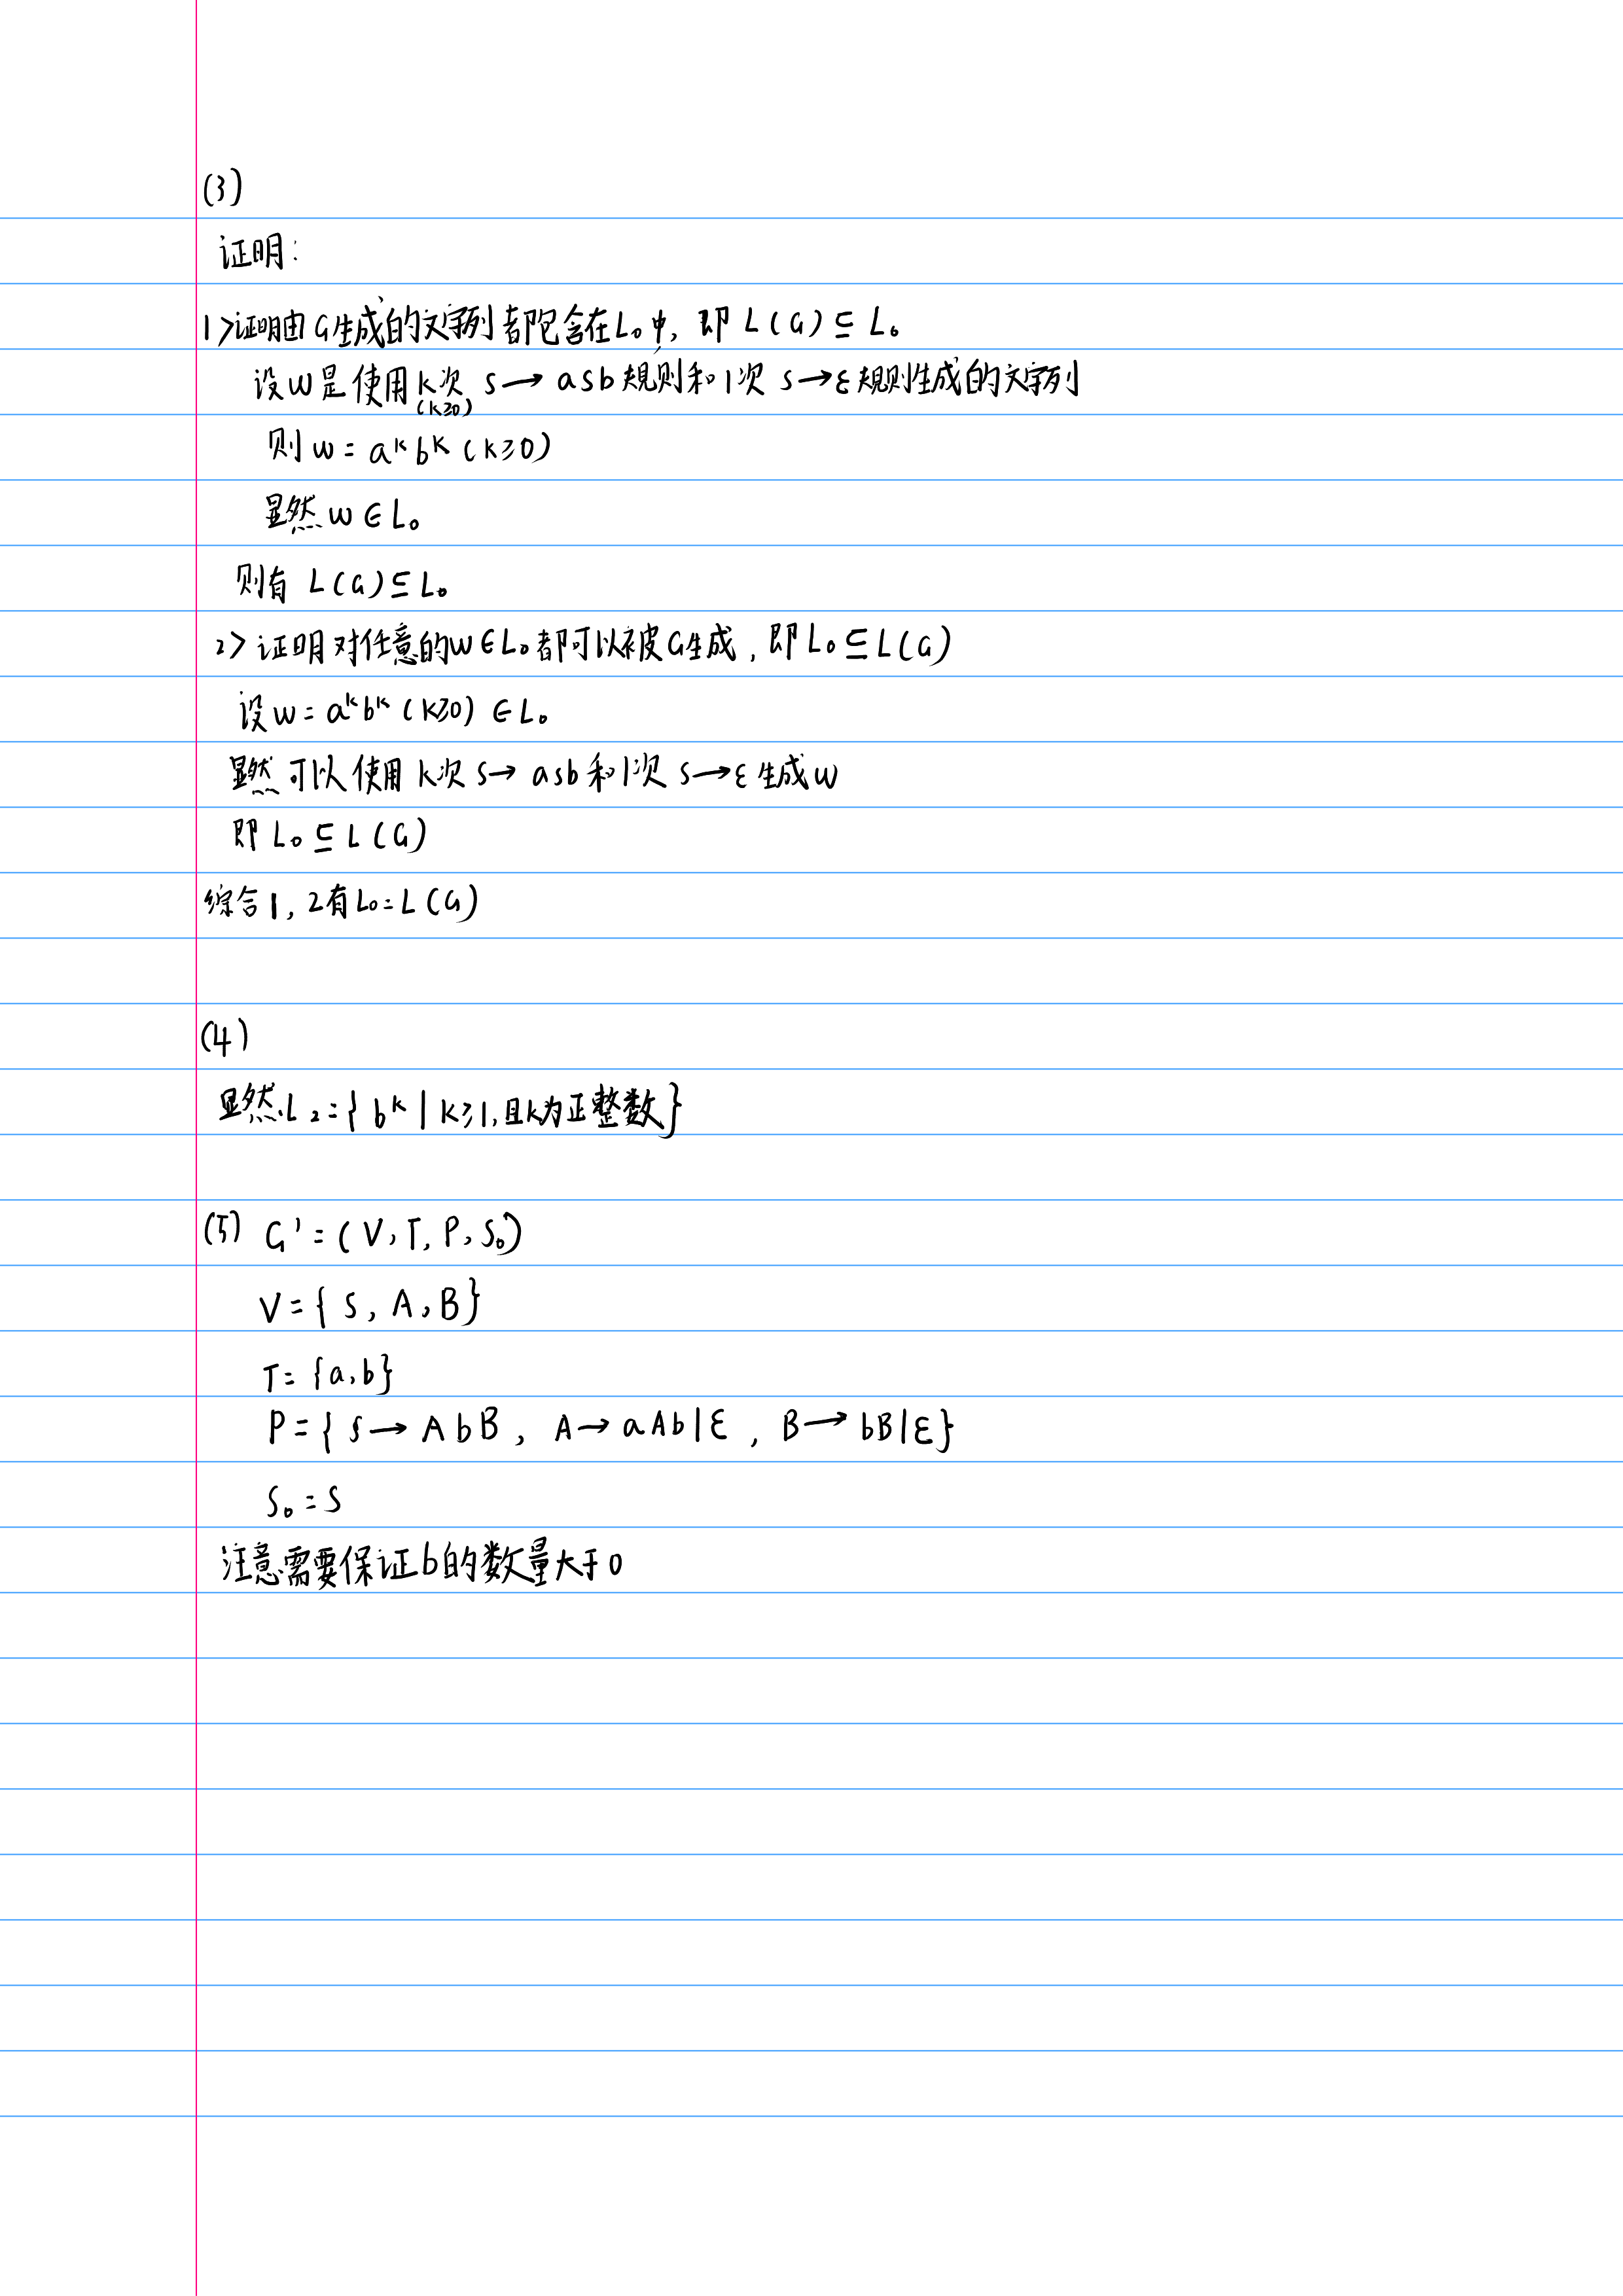 (3)
证明:
1>证明由G生成的文字列都包含在L₀中, 即 L(G)⊆L₀
设w是使用k次 S→aSb规则和1次 S→ε规则生成的文字列
(k≥0)
则w=aᵏbᵏ(k≥0)
显然w∈L₀
则有 L(G)⊆L₀
2>证明对任意的w∈L₀都可以被G生成, 即L₀⊆L(G)
设w=aᵏbᵏ(k≥0)∈L₀
显然可以使用k次S→aSb和1次 S→ε生成w
即L₀⊆L(G)
综合1,2有L₀=L(G)
(4)
显然L₂={bᵏ|k≥1,且k为正整数}
(5) G'=(V,T,P,S₀)
V={S,A,B}
T={a,b}
P={S→AbB, A→aAb|ε, B→bB|ε}
S₀=S
注意需要保证b的数量大于0